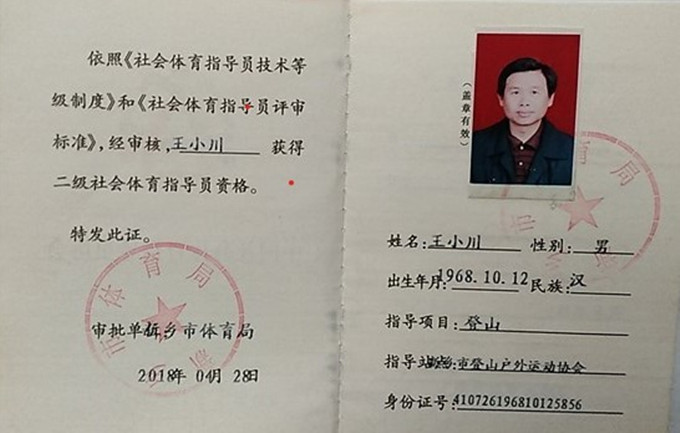 依照《社会体育指导员技术等
级制度》和《社会体育指导员评审
标准》，经审核，王小川 获得
二级社会体育指导员资格。
特发此证。
审批单 新乡市体育局
2018年 04月 28日
(盖章有效)
姓名：王小川 性别：男
出生年月：1968.10.12 民族：汉
指导项目：登山
指导站 市登山户外运动协会
身份证号：410726196810125856
市体育局
体育局